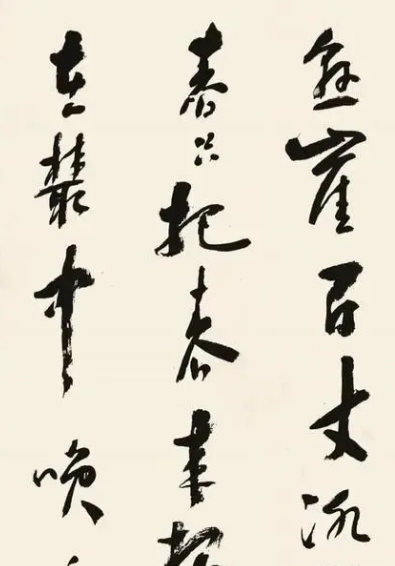 悬崖百丈冰
春只把春来
在叢中